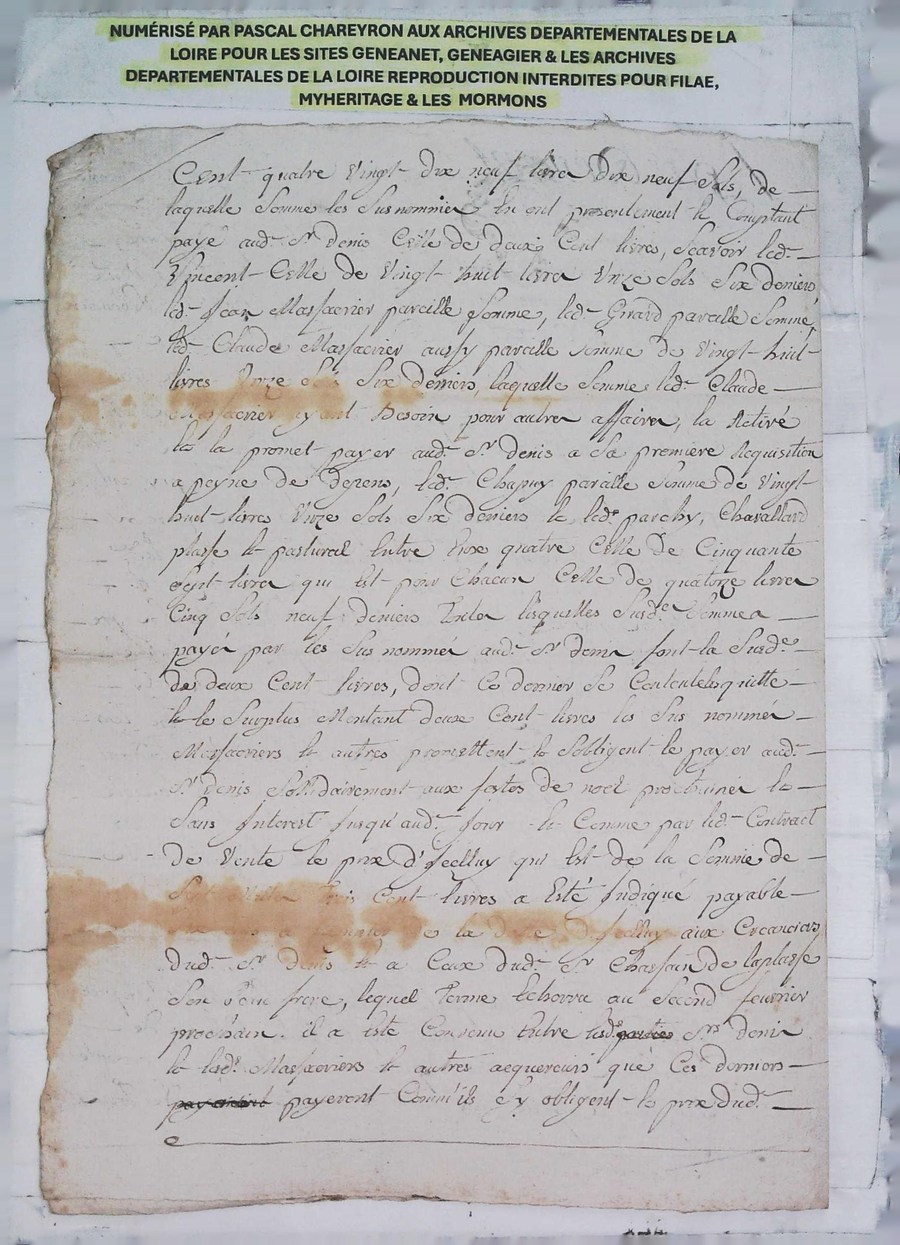 NUMÉRISÉ PAR PASCAL CHAREYRON AUX ARCHIVES DEPARTEMENTALES DE LA
LOIRE POUR LES SITES GENEANET, GENEAGIER & LES ARCHIVES
DEPARTEMENTALES DE LA LOIRE REPRODUCTION INTERDITES POUR FILAE,
MYHERITAGE & LES MORMONS
Cent quatre Vingt dix neuf livres dix neuf Sols, de
laquelle Somme les Susnommés En ont presentement & Comptant
payé aud. Sr denis Celle de deux Cent livres, Scavoir led.
Vincent Celle de Vingt huit livres Unze Sols Six deniers
led. Jean Massacrier pareille Somme, led. Girard pareille Somme,
led. Claude Massacrier aussy pareille somme de Vingt huit
livres Unze Sols Six deniers, laquelle Somme led. Claude
Massacrier ayant besoin pour autres affaires, la Retiré
& la promet payer aud. Sr denis a Sa premiere Requisition
a peyne de depens, led. Chapuy pareille Somme de Vingt
huit livres Unze Sols Six deniers & led. parchy, Chavallard
plasse & pastural Entre Eux quatre Celle de Cinquante
Sept livres qui Est pour Chacun Celle de quatorze livres
Cinq Sols neuf deniers Toutes lesquelles Susd. Sommes
payés par les Sus nommés aud. Sr denis font la Susd.
de deux Cent livres, dont Ce dernier Se Contente & quitte
& le Surplus Montant deux Cent livres les Sus nommés
Massacriers & autres promettent & Sobligent le payer aud.
Sr denis Sollidairement aux fetes de noel prochaines &
Sans Interest Jusqu'aud. Jour & Comme par led. Contract
de Vente le prix d'Jcelluy qui Est de la Somme de
trois Cent livres a Eté Indiqué payable
la date d'Jcelluy aux Creanciers
dud. Sr denis & a Ceux dud. Sr Chassain de laplasse
Son frere, lequel Terme Echerra au Second fevrier
prochain. il a Eté Convenu Entre lesd. parties Srs denis
& led. Massacriers & autres acquereurs que Ces derniers
payeront Comm'ils S'y obligent le prix dud.